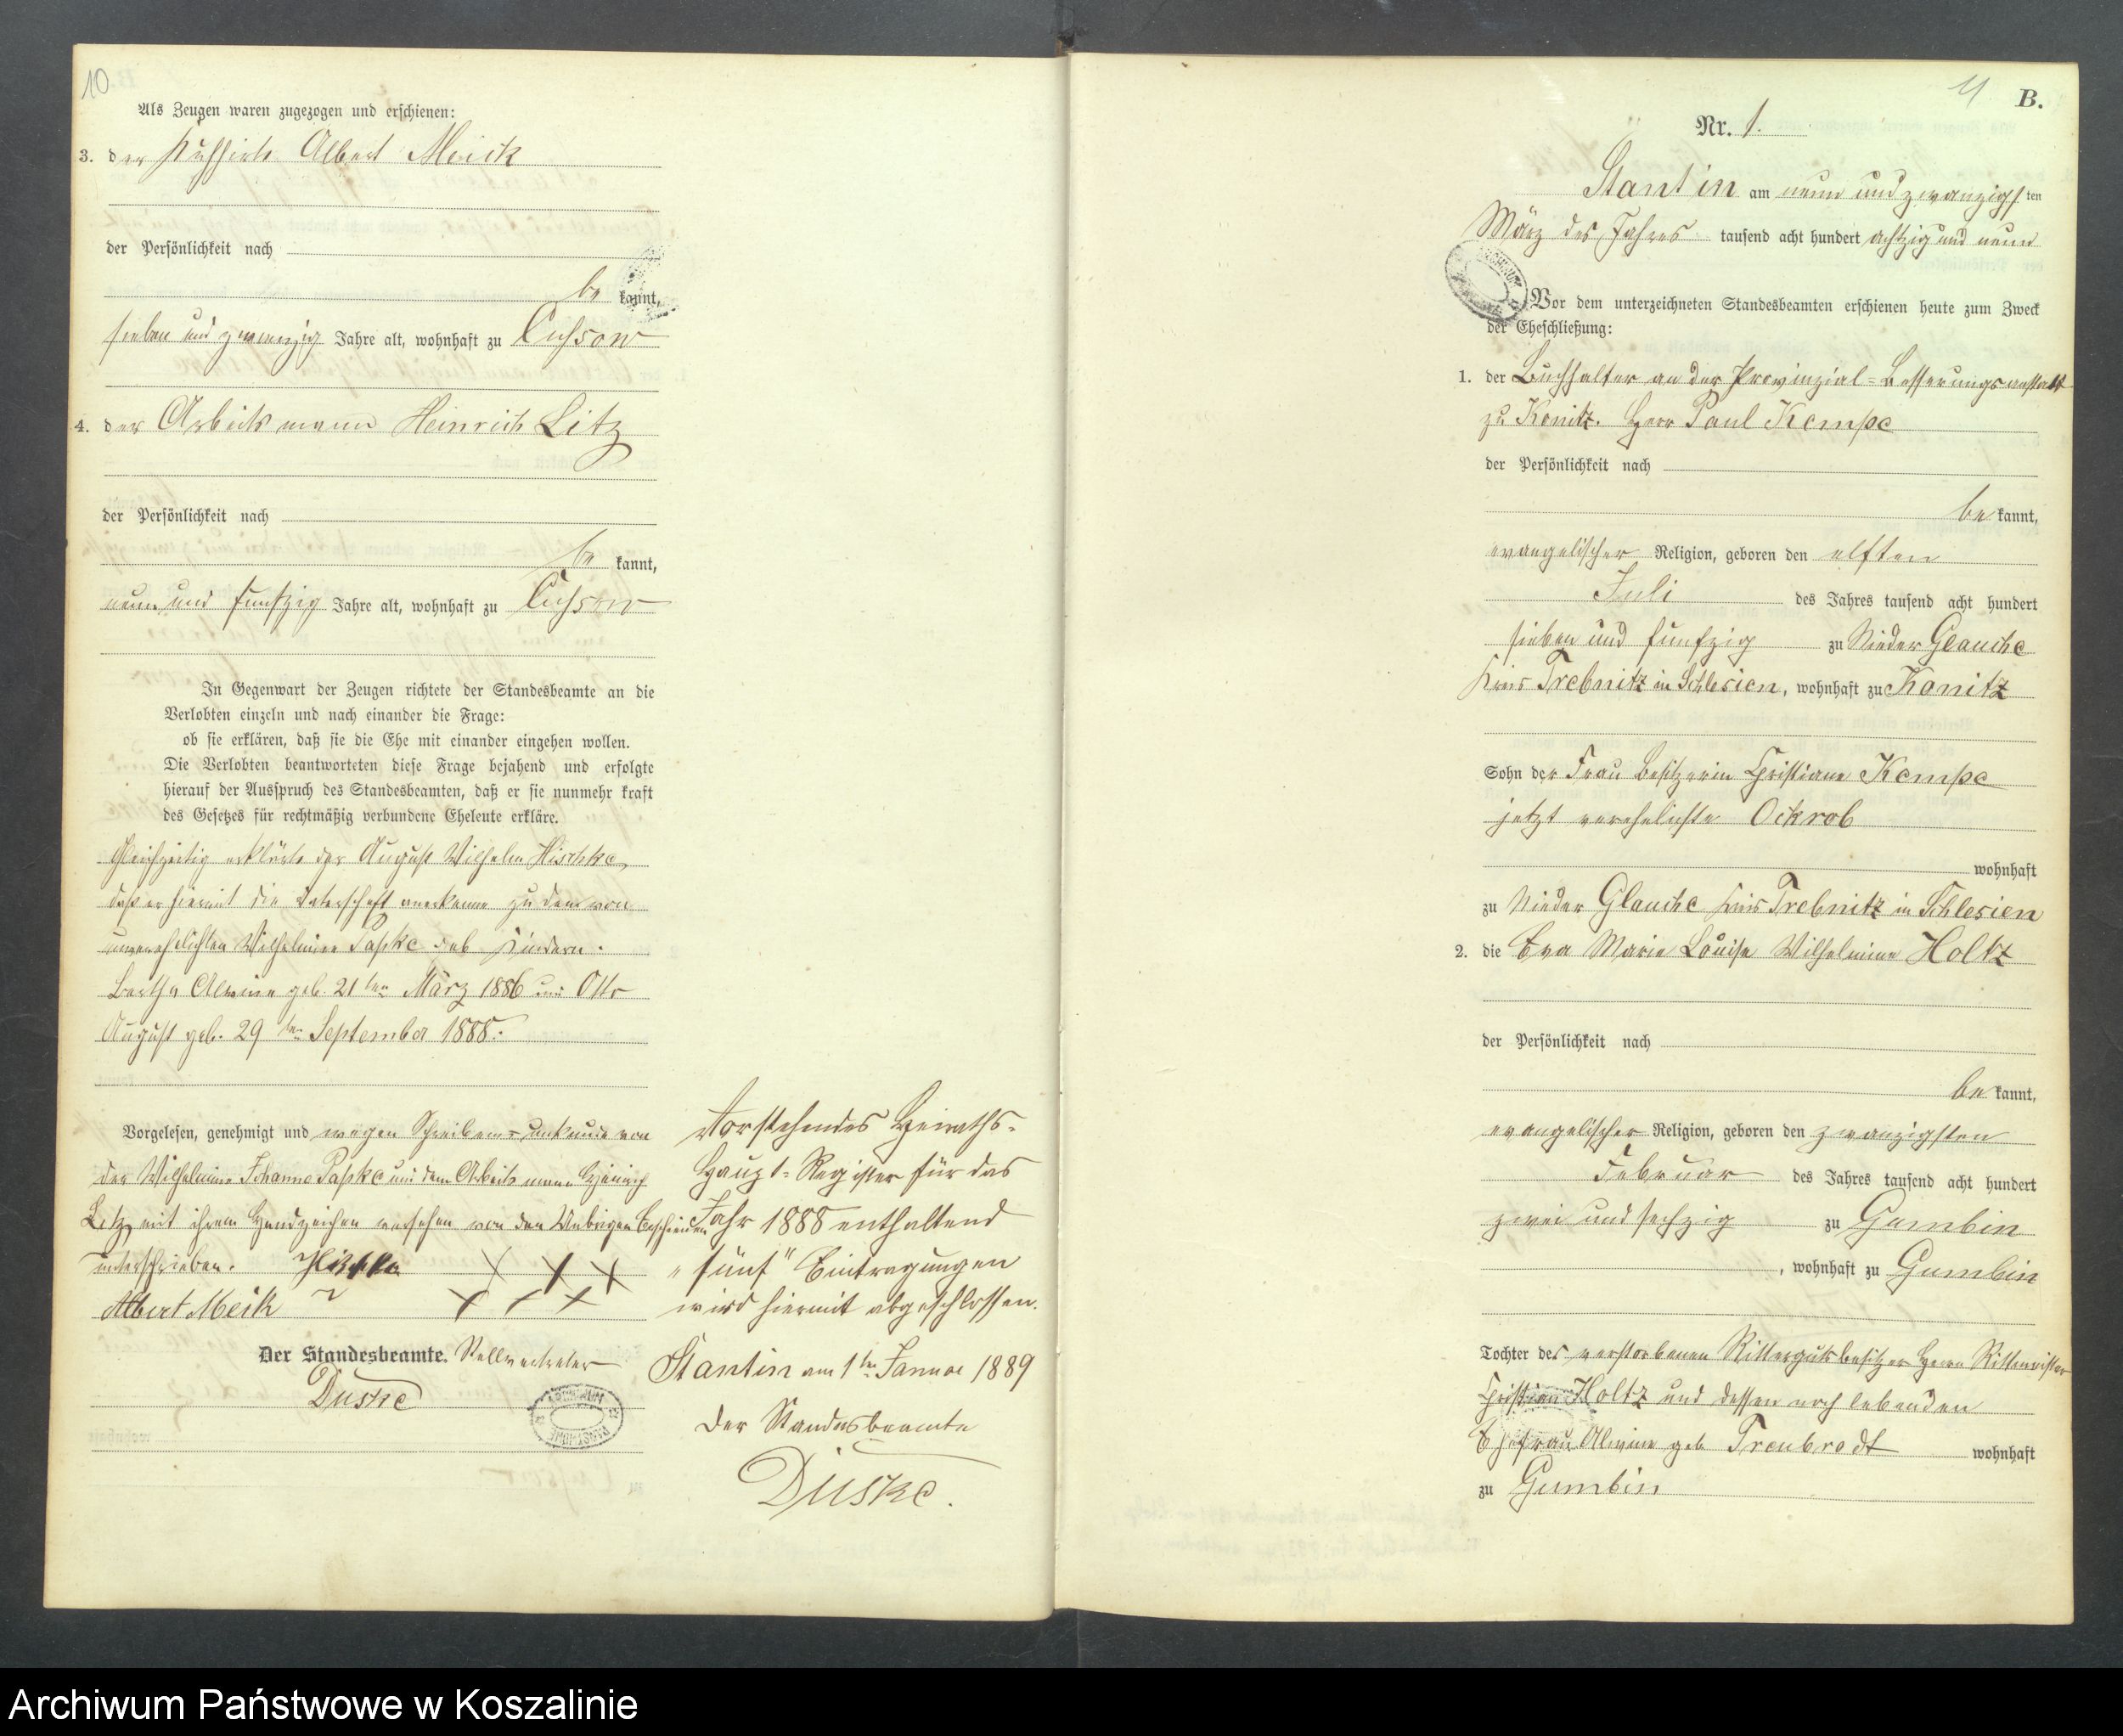 10.
Als Zeugen waren zugezogen und erschienen:
3. der Kuhhirte Albert Meick
der Persönlichkeit nach
be kannt,
sieben und zwanzig Jahre alt, wohnhaft zu Cussow
4. der Arbeitsmann Heinrich Litz
der Persönlichkeit nach
be kannt,
neun und funfzig Jahre alt, wohnhaft zu Cussow
In Gegenwart der Zeugen richtete der Standesbeamte an die
Verlobten einzeln und nach einander die Frage:
ob sie erklären, daß sie die Ehe mit einander eingehen wollen.
Die Verlobten beantworteten diese Frage bejahend und erfolgte
hierauf der Ausspruch des Standesbeamten, daß er sie nunmehr kraft
des Gesetzes für rechtmäßig verbundene Eheleute erkläre.
Gleichzeitig erklärte der August Wilhelm Hischke,
daß er hiermit die Vaterschaft anerkenne zu den von
unverehelichten Wilhelmine Papke geb. Kindern.
Bertha Alwine geb. 21ten März 1886 und Otto
August geb. 29ten September 1888.
Vorgelesen, genehmigt und wegen Schreibens-unkunde von
der Wilhelmine Johanne Papke und dem Arbeitsmann Heinrich
Litz mit ihrem Handzeichen versehen von den Uebrigen Erschienenen
unterschrieben. Hischke × × ×
Albert Meik × × ×
Der Standesbeamte. Stellvertreter
Duske
Vorstehendes Heiraths-
Haupt-Register für das
Jahr 1888 enthaltend
„fünf" Eintragungen
wird hiermit abgeschlossen.
Stantin am 1ten Januar 1889
Der Standesbeamte
Duske.
11
B.
Nr. 1.
Stantin am neun und zwanzigs ten
März des Jahres tausend acht hundert achtzig und neun
Vor dem unterzeichneten Standesbeamten erschienen heute zum Zweck
der Eheschließung:
1. der Buchhalter an der Provinzial-Besserungsanstalt
zu Konitz. Herr Paul Kempe
der Persönlichkeit nach
be kannt,
evangelischer Religion, geboren den elften
Juli des Jahres tausend acht hundert
sieben und funfzig zu Nieder Glauche
Kreis Trebnitz in Schlesien, wohnhaft zu Konitz
Sohn der Frau Besitzerin Christiane Kempe
jetzt verehelichte Ockrob
wohnhaft
zu Nieder Glauche Kreis Trebnitz in Schlesien
2. die Eva Marie Louise Wilhelmine Holtz
der Persönlichkeit nach
be kannt,
evangelischer Religion, geboren den zwanzigsten
Februar des Jahres tausend acht hundert
zwei und sechzig zu Gumbin
, wohnhaft zu Gumbin
Tochter des verstorbenen Rittergutsbesitzer Herrn Rittmeister
Christian Holtz und dessen noch lebenden
Ehefrau Alwine geb. Treubrodt wohnhaft
zu Gumbin
Archiwum Państwowe w Koszalinie